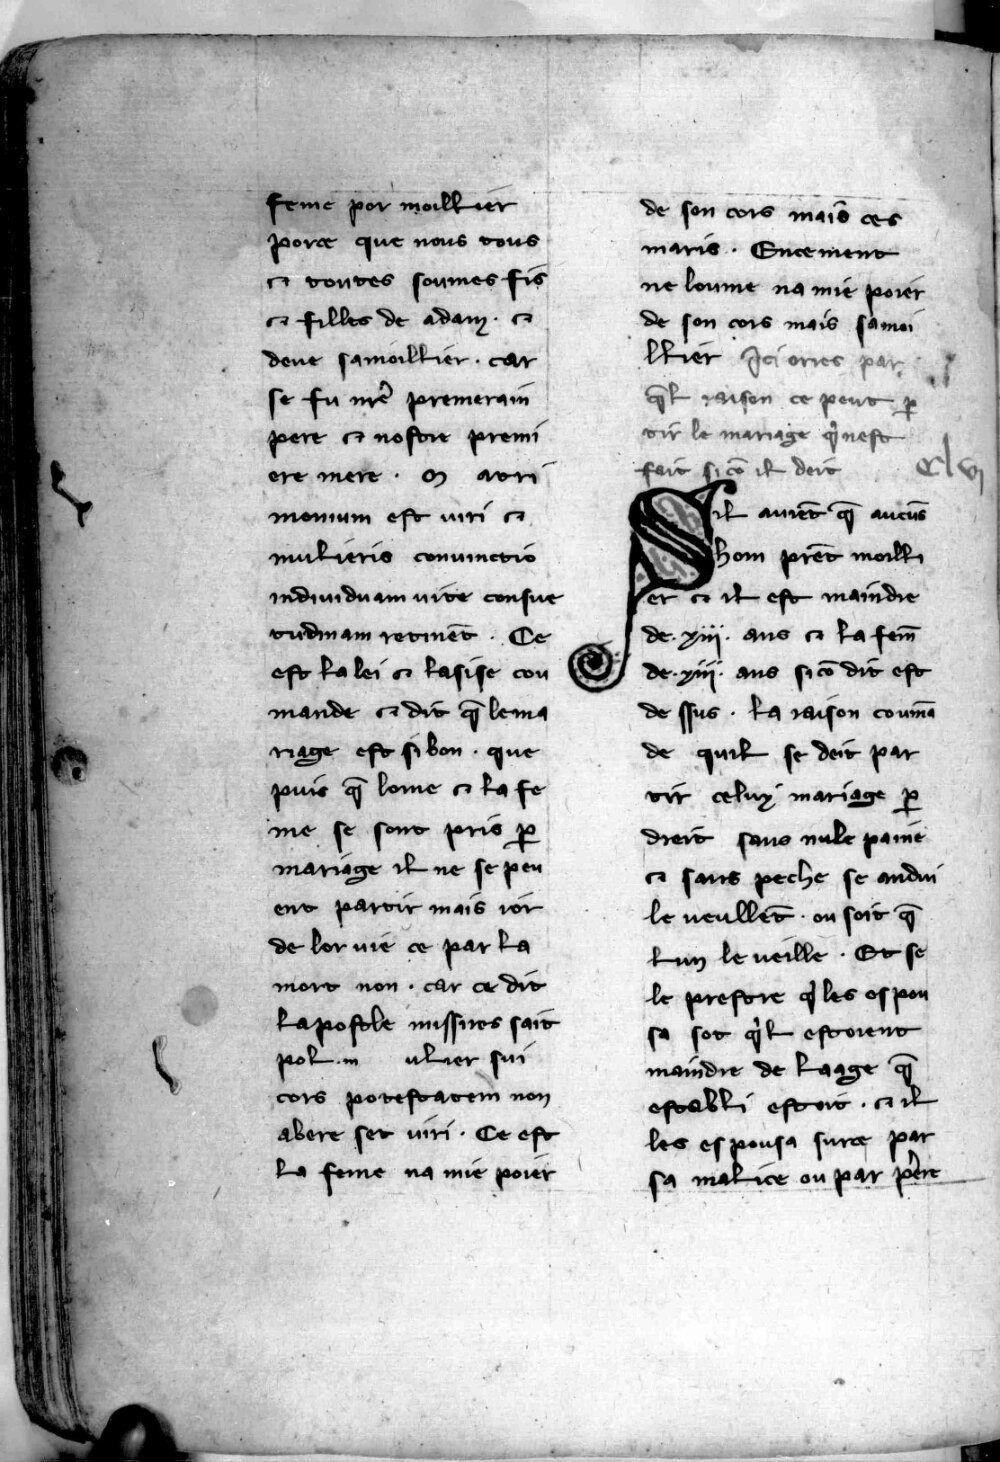 feme por moillier
porce que nous tous
⁊ toutes soumes fis
⁊ filles de adam · ⁊
deue samoillier · car
se fu nr̄e premerain
pere ⁊ nostre premi
ere mere · M atri
monium est uiri ⁊
mulieris coniunctio
indiuiduam uite consue
tudinam retinēt · Ce
est la lei ⁊ lasise cou
mande ⁊ dit q̄ le ma
riage est si bon · que
puis q̄ lome ⁊ la fe
me se sont pris ꝑ
mariage il ne se peu
ent partir mais ior
de lor uie ce par la
mort non · car ce dit
lapostle missires saīt
pol · m ulier sui
cors potestatem non
abere set uiri · Ce est
la feme na mie poier
de son cors mais ces
maris · Encement
ne loume na mie poier
de son cors mais samoi
llier Ici orres par
q̄l raison ce peut ꝑ
tir le mariage q̇ nest
fait si cō il deit
Clvi
S il auiēt q̄ aucūs
hom prēt moilli
er ⁊ il est maindre
de · xiiii · ans ⁊ la fem̄
de · xiii · ans si cō dit est
de ssus · la raison coum̄a
de quil se deit par
tir celuy mariage ꝑ
dreit sans nule paine
⁊ sans peche se andui
le ueullēt · ou soit q̄
lun le ueille · Et se
le prestre q̇ les espou
sa sot q̇l estoient
maindre de laage q̄
establi estoit · ⁊ il
les espousa surce par
sa malice ou par p̄ere